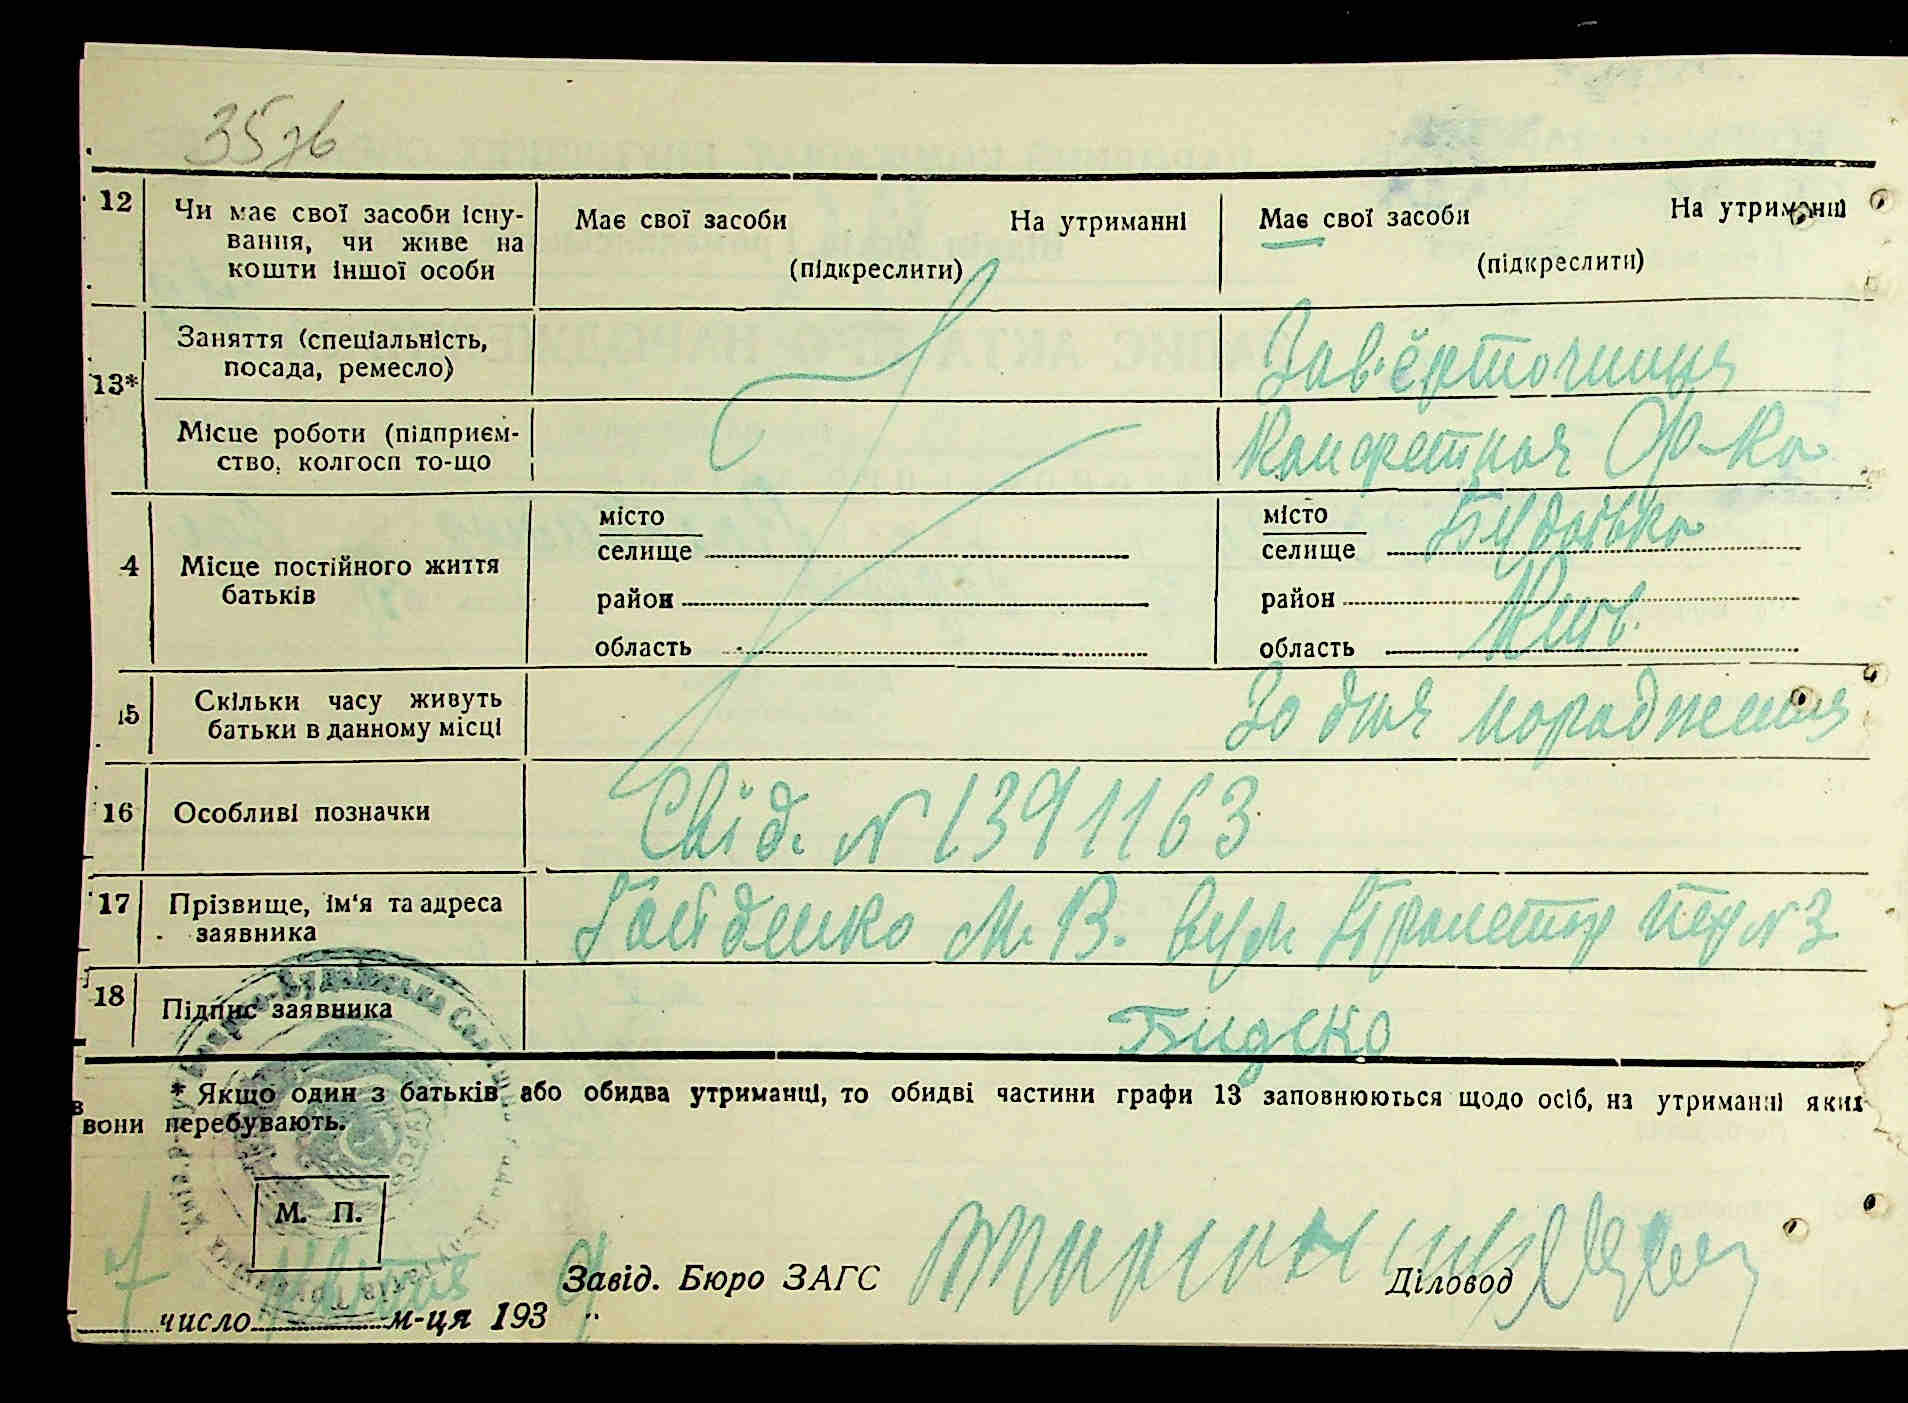 35зв
12 Чи має свої засоби існу- Має свої засоби На утриманні Має свої засоби На утриманні
вання, чи живе на
кошти іншої особи (підкреслити) (підкреслити)
13* Заняття (спеціальність, Зав'єрточниця
посада, ремесло)
Місце роботи (підприєм- Конфетная Ф-ка
ство, колгосп то-що
4 Місце постійного життя місто місто Будаївка
батьків селище селище
район район
область область Київ.
15 Скільки часу живуть Зо дня народження
батьки в данному місці
16 Особливі позначки Свід. N 1391163
17 Прізвище, ім'я та адреса Гайденко М. В. вул. N 3
заявника
18 Підпис заявника
* Якщо один з батьків або обидва утриманці, то обидві частини графи 13 заповнюються щодо осіб, на утриманні яких
вони перебувають.
М. П.
7 9
Завід. Бюро ЗАГС Діловод
число м-ця 193